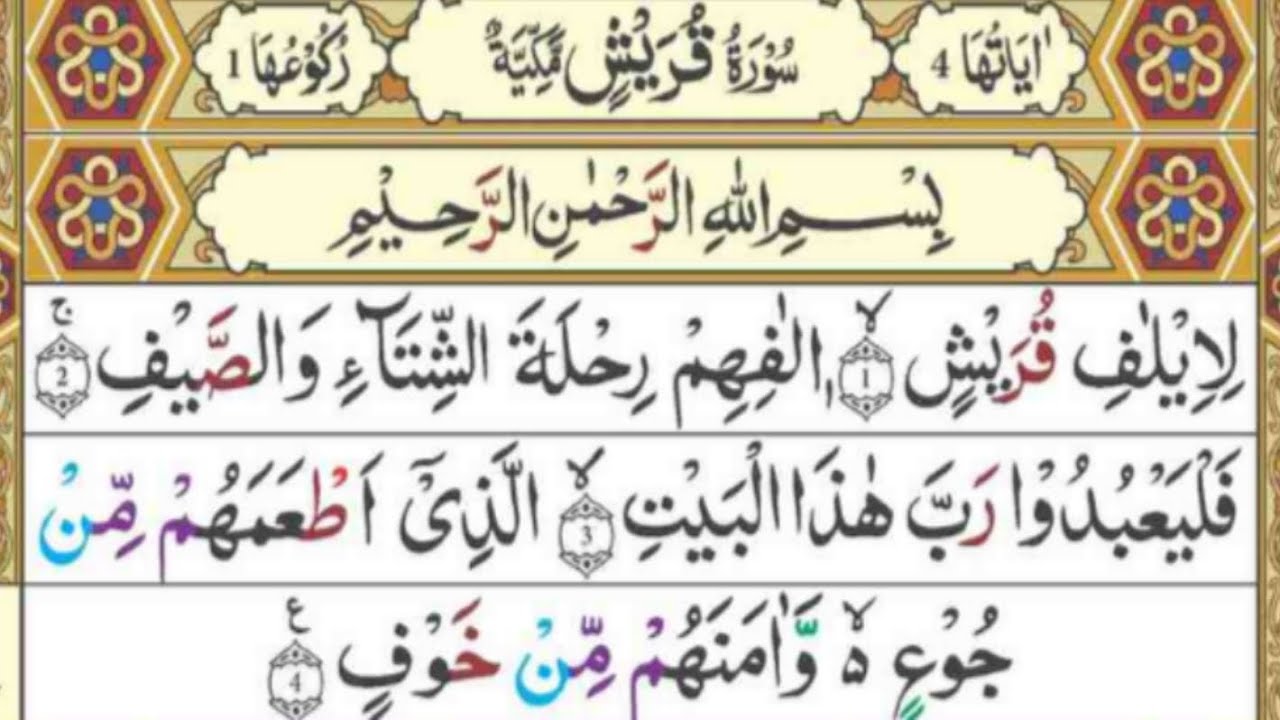 اٰيَاتُهَا 4 سُوْرَةُ قُرَيْشٍ مَّكِّيَّةٌ رُكُوْعُهَا 1
بِسْمِ اللّٰهِ الرَّحْمٰنِ الرَّحِيْمِ
لِاِيْلٰفِ قُرَيْشٍ ۙ 1 اٖلٰفِهِمْ رِحْلَةَ الشِّتَآءِ وَالصَّيْفِ ۚ 2
فَلْيَعْبُدُوْا رَبَّ هٰذَا الْبَيْتِ ۙ 3 الَّذِىْٓ اَطْعَمَهُمْ مِّنْ
جُوْعٍ ۙ۬ وَّاٰمَنَهُمْ مِّنْ خَوْفٍ ع 4